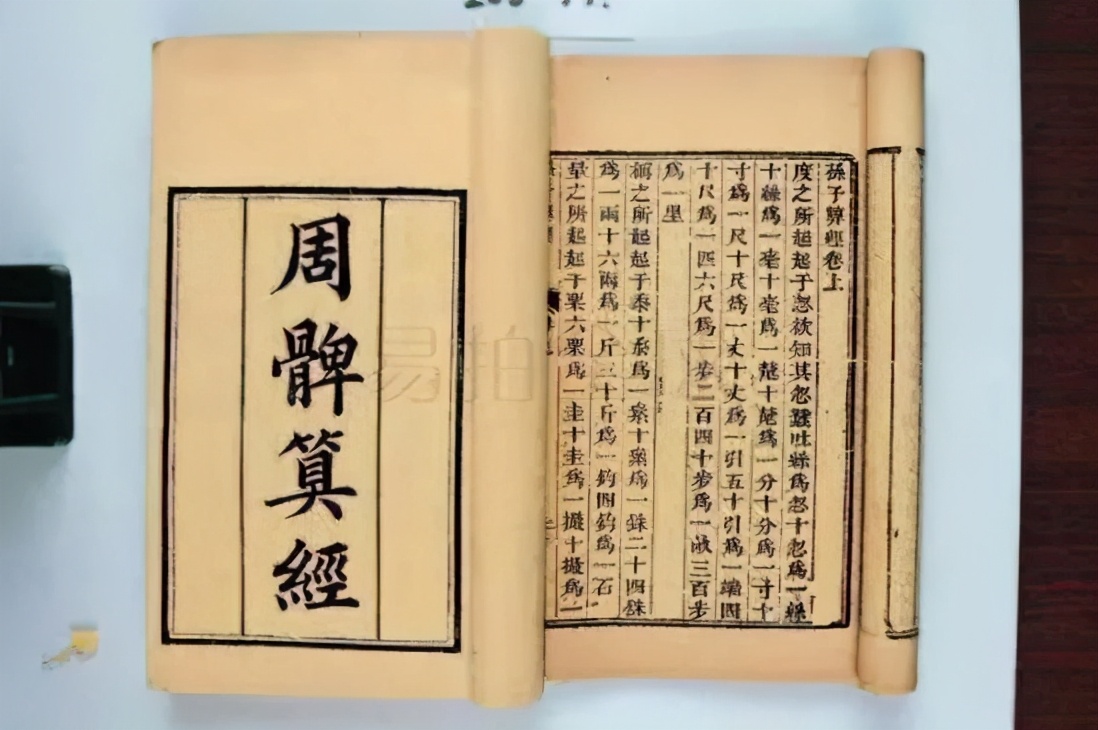 周髀算經
孫子算經卷上
度之所起起于忽欲知其忽蠶吐絲爲忽十忽爲一絲
十絲爲一毫十毫爲一氂十氂爲一分十分爲一寸十
寸爲一尺十尺爲一丈十丈爲一引五十引爲一端四
十尺爲一匹六尺爲一步二百四十步爲一畝三百步
爲一里
稱之所起起于黍十黍爲一絫十絫爲一銖二十四銖
爲一兩十六兩爲一斤三十斤爲一鈞四鈞爲一石
量之所起起于粟六粟爲一圭十圭爲一撮十撮爲一
易拍